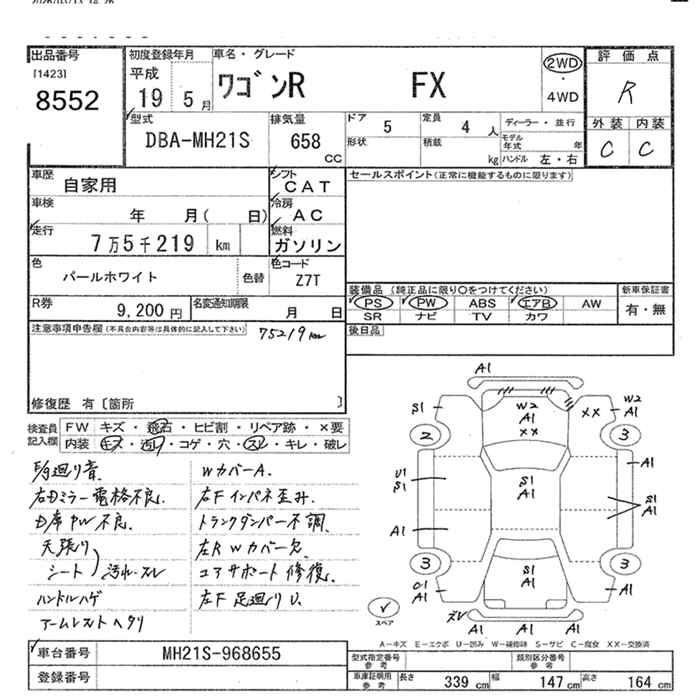 出品番号
[1423]
8552
初度登録年月
平成
19 5 月
車名・グレード
ワゴンR FX
2WD
・
4WD
評価点
R
外装 内装
C C
型式
DBA-MH21S
排気量
658
CC
ドア
5
定員
4 人
形状
積載
kg
ディーラー・並行
モデル年式 年
ハンドル 左・右
車歴
自家用
シフト
CAT
車検
年 月( 日)
冷房
AC
走行
7万5千219 km
燃料
ガソリン
色
パールホワイト
色替
色コード
Z7T
R券
9,200 円
名変通知期限
月 日
セールスポイント(正常に機能するものに限ります)
装備品 (純正品に限り○をつけてください)
PS PW ABS エアB AW
SR ナビ TV カワ
新車保証書
有・無
後日品
注意事項申告欄(不具合内容等は具体的に記入して下さい)
75219km
修復歴 有〔箇所 〕
検査員記入欄
FW キズ・飛石・ヒビ割・リペア跡・×要
内装 キズ・汚れ・コゲ・穴・スレ・キレ・破レ
右Dミラー電格不良.
D席PW不良.
天張り
シート
汚れ・スレ
ハンドルハゲ
アームレストヘタリ
WカバーA.
左Fインパネ歪み.
トランクダンパー不調.
左RWカバー欠
コアサポート修復.
左F足廻りU.
A1
S1
W2
A1
XX
XX
W2
A1
2
3
U1
S1
A1
S1
A1
S1
A1
A1
3
3
S1
A1
A1
A1
スペア
スレ
A1 A1 A1
A-キズ E-エクボ U-凹み W-補修跡 S-サビ C-腐食 XX-交換済
車台番号
MH21S-968655
登録番号
型式指定番号
参考
類別区分番号
参考
車庫証明用
参考
長さ 339 cm
幅 147 cm
高さ 164 cm